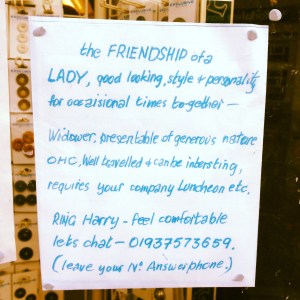 the FRIENDSHIP of a
LADY, good looking, style + personality
for occaisional times together —
Widower, presentable of generous nature
OHC. Well travelled + can be intersting,
requires your company Luncheon etc.
RING Harry - feel comfortable
lets chat — 01937573659.
(leave your No. Answerphone.)